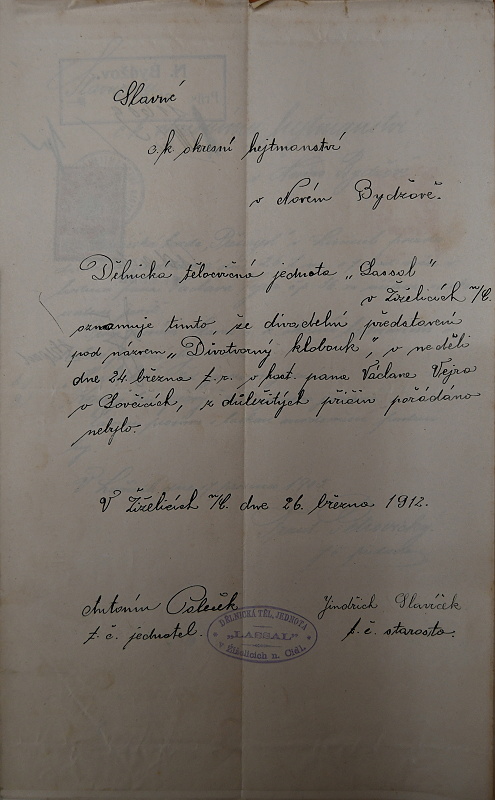 Slavné
c. k. okresní hejtmanství
v Novém Bydžově.
Dělnická tělocvičná jednota „Lassal"
v Žíželicích n/C.
oznamuje tímto, že divadelní představení
pod názvem „Divotvorný klobouk", v neděli
dne 24. března t. r. v host. pana Václava Vejra
v Lovčicích, z důležitých příčin pořádáno
nebylo.
V Žíželicích n/C. dne 26. března 1912.
Antonín
Jindřich Slavíček
t. č. jednatel.
t. č. starosta.
DĚLNICKÁ TĚL. JEDNOTA
„LASSAL"
v Žíželicích n. Cidl.
N. Bydžov.